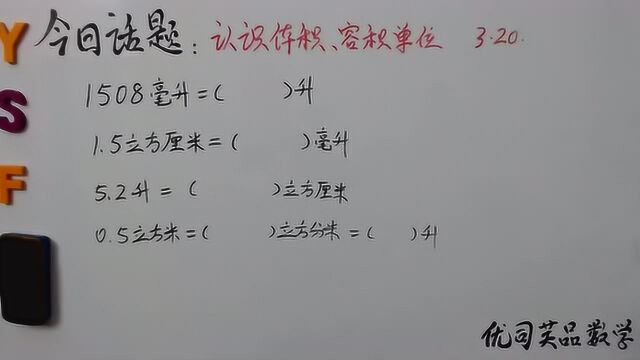 今日话题：认识体积、容积单位 3.20.
1508毫升=( )升
1.5立方厘米=( )毫升
5.2升=( )立方厘米
0.5立方米=( )立方分米=( )升
优司芙品数学
Y
S
F